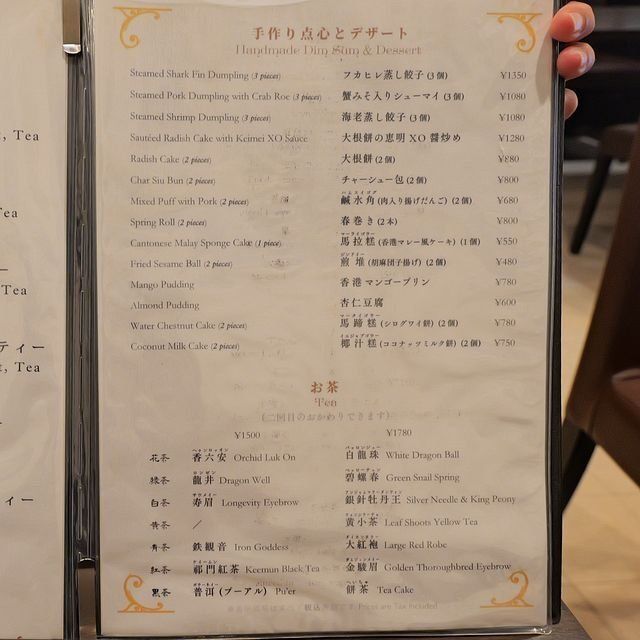 , Tea
Tea
ー
Tea
ティー
t, Tea
ィー
手作り点心とデザート
Handmade Dim Sum & Dessert
Steamed Shark Fin Dumpling (3 pieces) フカヒレ蒸し餃子 (3個) ¥1350
Steamed Pork Dumpling with Crab Roe (3 pieces) 蟹みそ入りシューマイ (3個) ¥1080
Steamed Shrimp Dumpling (3 pieces) 海老蒸し餃子 (3個) ¥1080
Sautéed Radish Cake with Keimei XO Sauce 大根餅の恵明 XO 醤炒め ¥1280
Radish Cake (2 pieces) 大根餅 (2個) ¥880
Char Siu Bun (2 pieces) チャーシュー包 (2個) ¥800
Mixed Puff with Pork (2 pieces) 鹹水角 (肉入り揚げだんご) (2個) ¥680
Spring Roll (2 pieces) 春巻き (2本) ¥800
Cantonese Malay Sponge Cake (1 piece) 馬拉糕 (香港マレー風ケーキ) (1個) ¥550
Fried Sesame Ball (2 pieces) 煎堆 (胡麻団子揚げ) (2個) ¥480
Mango Pudding 香港マンゴープリン ¥780
Almond Pudding 杏仁豆腐 ¥600
Water Chestnut Cake (2 pieces) 馬蹄糕 (シログワイ餅) (2個) ¥780
Coconut Milk Cake (2 pieces) 椰汁糕 (ココナッツミルク餅) (2個) ¥750
お茶
Tea
(二回目のおかわりできます)
¥1500 ¥1780
花茶 香六安 Orchid Luk On 白龍珠 White Dragon Ball
緑茶 龍井 Dragon Well 碧螺春 Green Snail Spring
白茶 寿眉 Longevity Eyebrow 銀針牡丹王 Silver Needle & King Peony
黄茶 / 黄小茶 Leaf Shoots Yellow Tea
青茶 鉄観音 Iron Goddess 大紅袍 Large Red Robe
紅茶 祁門紅茶 Keemun Black Tea 金駿眉 Golden Thoroughbred Eyebrow
黒茶 普洱 (プーアル) Pu'er 餅茶 Tea Cake
税込 Prices are Tax Included